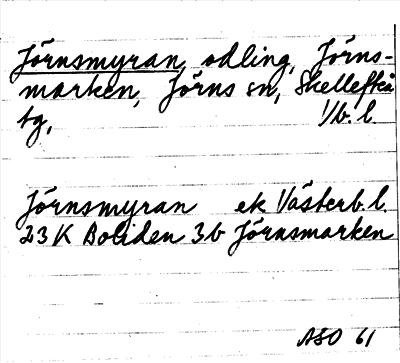 Jörnsmyran, odling, Jörns-
marken, Jörns sn, Skellefteå
tg, Vb. l.
Jörnsmyran ek Västerb. l.
23 K Boliden 3b Jörnsmarken
ASO 61